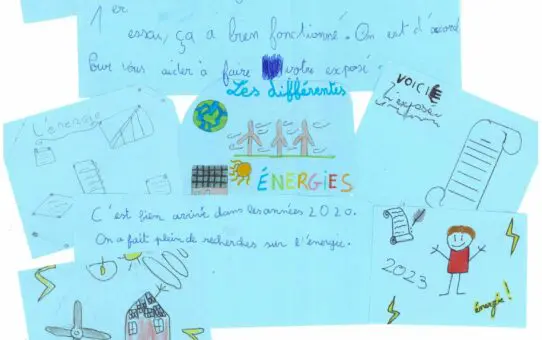 1er
essai, ça a bien fonctionné. On est d'accord
Pour vous aider à faire votre exposé.
Les différentes
ÉNERGIES
VOICIE
l'exposé
L'énergie
C'est bien arrivé dans les années 2020.
On a fait plein de recherches sur l'énergie.
2023
énergie!